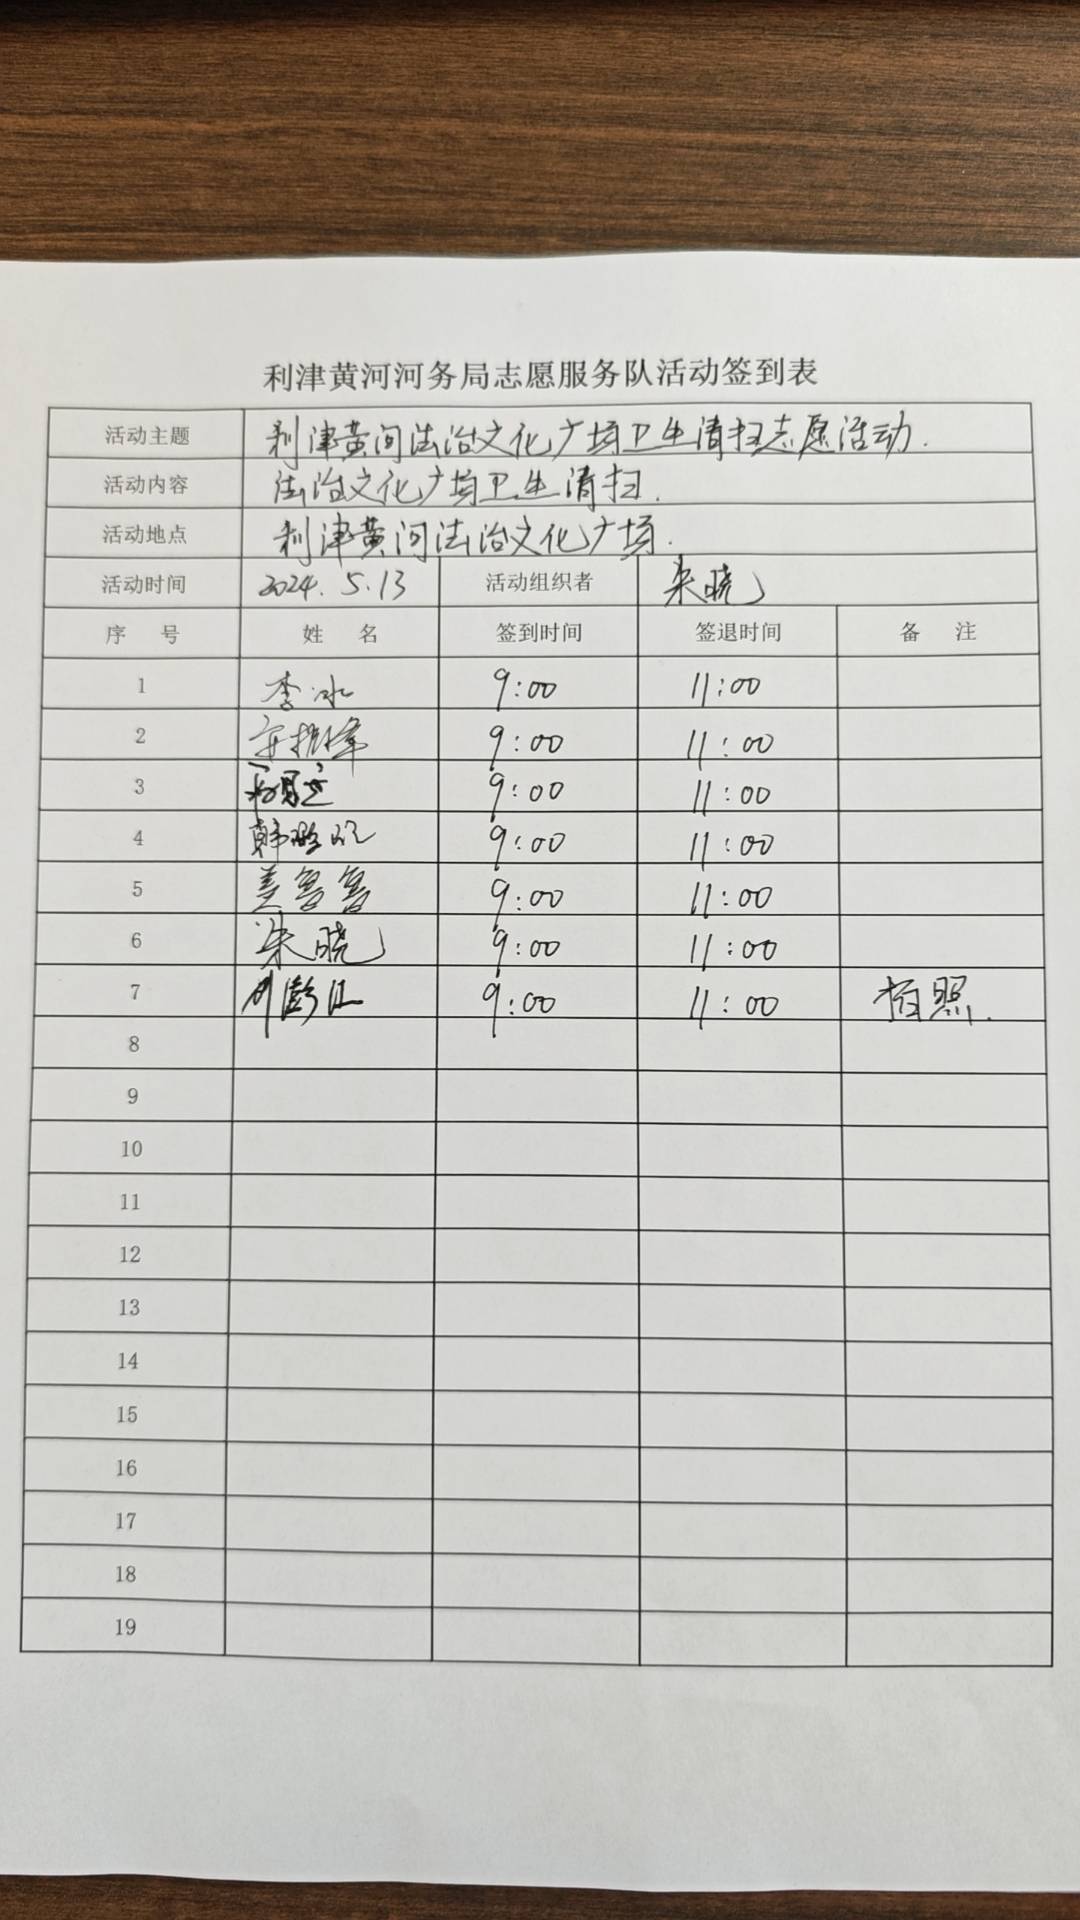 利津黄河河务局志愿服务队活动签到表
活动主题 利津黄河法治文化广场卫生清扫志愿活动.
活动内容 法治文化广场卫生清扫.
活动地点 利津黄河法治文化广场.
活动时间 2024.5.13 活动组织者 晓
序 号 姓 名 签到时间 签退时间 备 注
1 李冰 9:00 11:00
2 9:00 11:00
3 9:00 11:00
4 韩 9:00 11:00
5 9:00 11:00
6 晓 9:00 11:00
7 9:00 11:00 拍照.
8
9
10
11
12
13
14
15
16
17
18
19